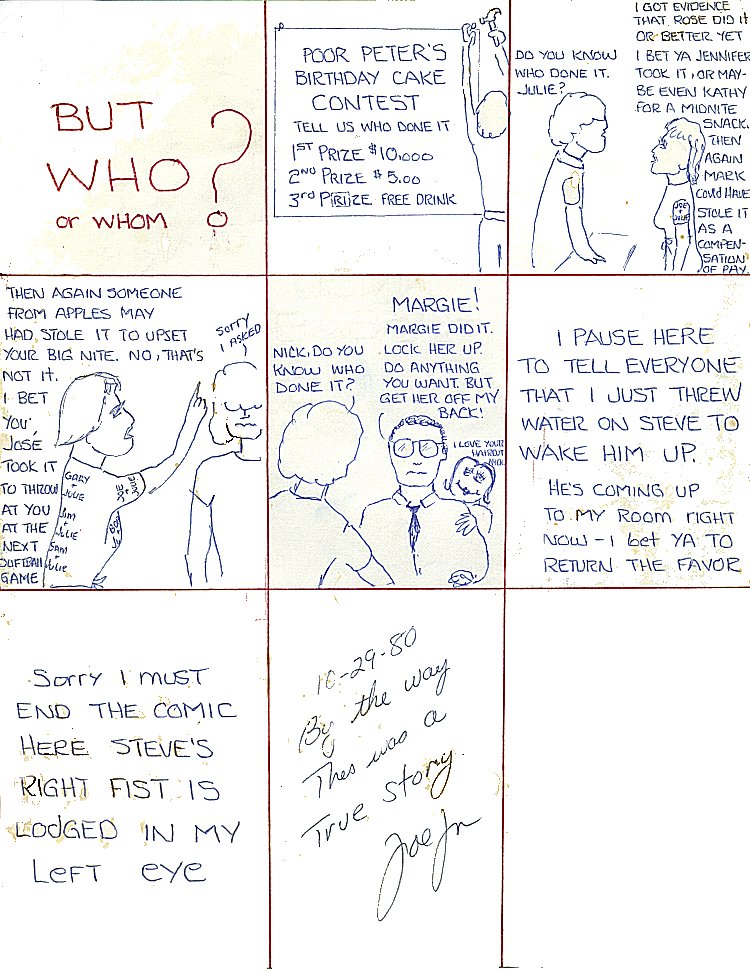 BUT
WHO
or WHOM
?
POOR PETER'S
BIRTHDAY CAKE
CONTEST
TELL US WHO DONE IT
1ST PRIZE $10,000
2ND PRIZE $5.00
3rd PRIZE FREE DRINK
DO YOU KNOW
WHO DONE IT.
JULIE?
I GOT EVIDENCE
THAT ROSE DID IT
OR BETTER YET
I BET YA JENNIFER
TOOK IT, OR MAY-
BE EVEN KATHY
FOR A MIDNITE
SNACK.
THEN
AGAIN
MARK
COULD HAVE
STOLE IT
AS A
COMPEN-
SATION
OF PAY
JOE
+
JULIE
THEN AGAIN SOMEONE
FROM APPLES MAY
HAD STOLE IT TO UPSET
YOUR BIG NITE. NO, THAT'S
NOT IT.
I BET
YOU,
JOSÉ
TOOK IT
TO THROW
AT YOU
AT THE
NEXT
SOFTBALL
GAME
SORRY
I ASKED
GARY
+
JULIE
JIM
+
JULIE
SAM
+
JULIE
JOE
JULIE
NICK, DO YOU
KNOW WHO
DONE IT?
MARGIE!
MARGIE DID IT.
LOCK HER UP.
DO ANYTHING
YOU WANT. BUT
GET HER OFF MY
BACK!
I LOVE YOUR
HAIRCUT
NICK
I PAUSE HERE
TO TELL EVERYONE
THAT I JUST THREW
WATER ON STEVE TO
WAKE HIM UP.
HE'S COMING UP
TO MY ROOM rIGHT
NOW - I bet YA TO
RETURN THE FAVOR
Sorry I MUST
END THE COMIC
HERE STEVE'S
RIGHT FIST IS
LODGED IN MY
LEFT eye
10-29-80
By the way
This was a
True story.
Joe Jr